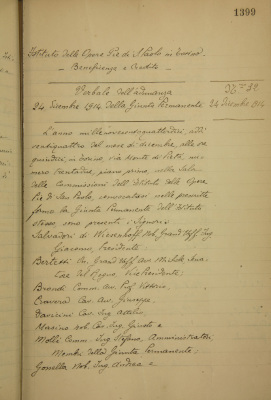 1399
Istituto delle Opere Pie di S. Paolo in Torino
— Beneficenza e Credito —
Verbale dell'adunanza
24 Dicembre 1914 della Giunta Permanente
N.° 32
24 Dicembre 1914
L'anno millenovecentoquattordici, addì
ventiquattro del mese di dicembre, alle ore
quindici, in Torino, via Monte di Pietà, nu-
mero trentadue, piano primo, nella Sala
delle Commissioni dell'Istituto delle Opere
Pie di San Paolo, convocatasi nelle prescritte
forme la Giunta Permanente dell'Istituto
stesso, sono presenti i Signori:
Salvadori di Wiesenhoff Nob. Grand'Uff. Ing.
Giacomo, Presidente
Bertetti Gr. Uff. Avv. Michele, Sena-
tore del Regno, Vice Presidente
Comm. Avv. Prof. Vittorio
Cravera Cav. Avv. Giuseppe
Cav. Ing. Attilio
Cav. Ing. Guido e
Molli Comm. Ing. Stefano, Amministratori,
Membri della Giunta Permanente
Gonella Nob. Ing. Andrea e